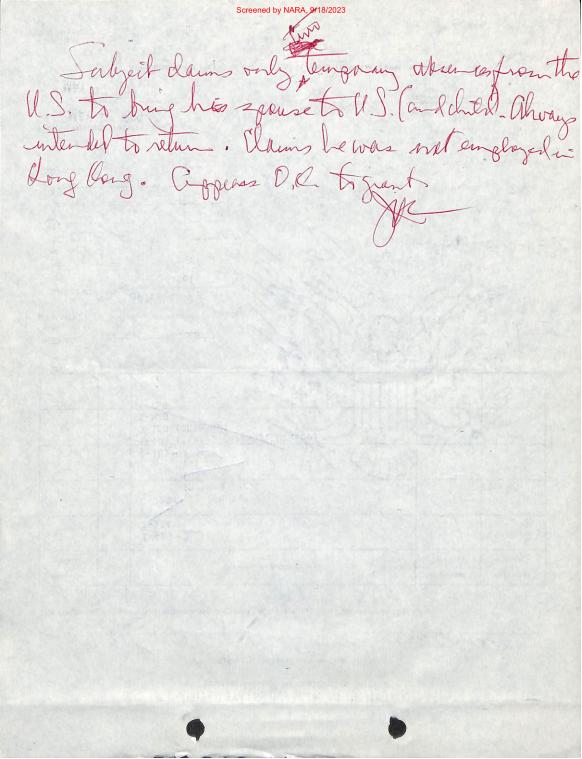 Screened by NARA, 9/18/2023
two
Subject claims only temporary absences from the
U.S. to bring his spouse to U.S. (and child. Always
intended to return. Claims he was not employed in
Hong Kong. Appears O.K. to grant